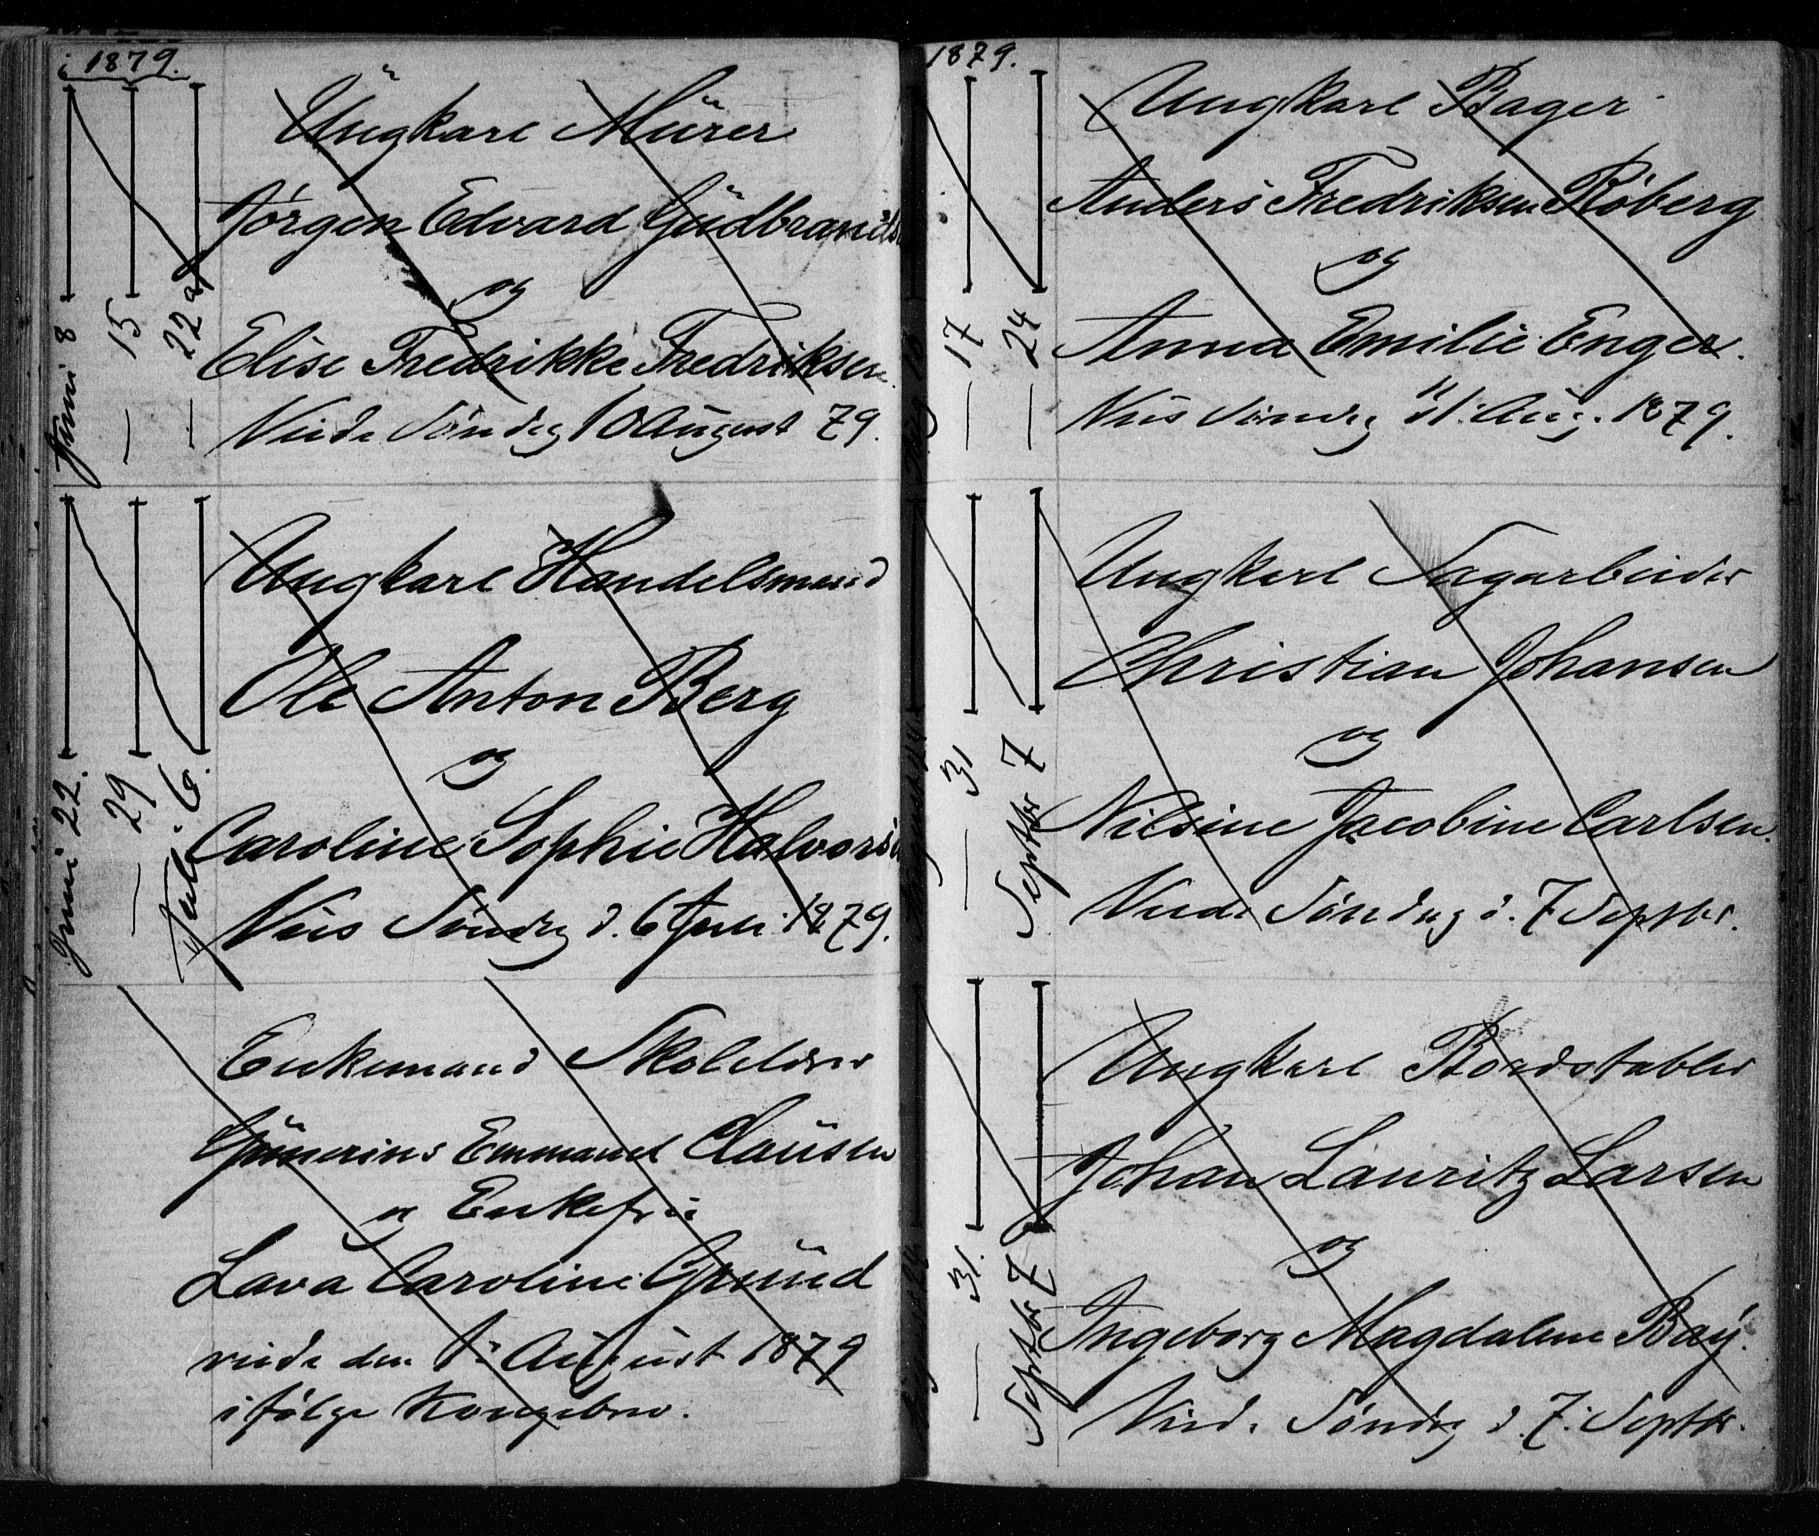 i 1879.
Ungkarl Murer
Jørgen Edvard Gudbrandsen
og
Elise Fredrikke Fredriksen
Viede Søndag 10 August 79.
Juni 8
— 15
— 22
Ungkarl Handelsmand
Ole Anton Berg
og
Caroline Sophie Halvorsen
Viis Søndag d. 6 Juli 1879.
Juni 22.
— 29
Juli 6.
Enkemand Skolelærer
Emmanuel Clausen
og Enkefru
Lava Caroline Grund
viede den August 1879
ifølge Kongebrev.
1879.
Ungkarl Bager
Anders Fredriksen Røberg
og
Anna Emilie Enger.
Viis Søndag Aug. 1879.
— 17
— 24
Ungkarl Sagarbeider
Christian Johansen
og
Nilsine Jacobine Carlsen.
Viede Søndag d. 7 Septbr.
— 31
Septbr 7
Ungkarl Bordstabler
Johan Lauritz Larsen
og
Ingeborg Magdalene Bay.
Vied. Søndag d. 7. Septbr.
— 31.
Septbr 7